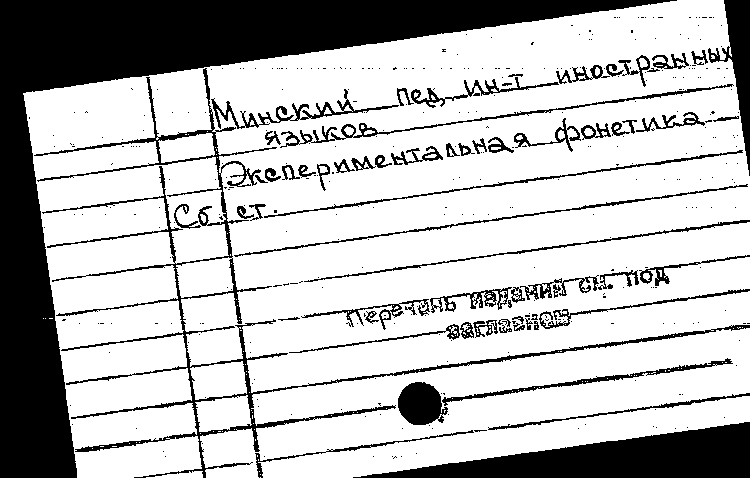 Минский пед. ин-т иностранных
языков
Экспериментальная фонетика.
Сб. ст.
Перечень изданий см. под
заглавием